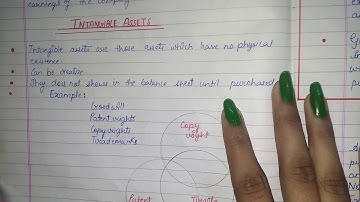 earnings of the company
INTANGIBLE ASSETS
Intangible assets are those assets which have no physical
existence.
Can be creative.
They does not shows in the balance sheet until purchased
Example:
Goodwill
Patent rights
Copy rights
Trademarks
Copy
right
Patent